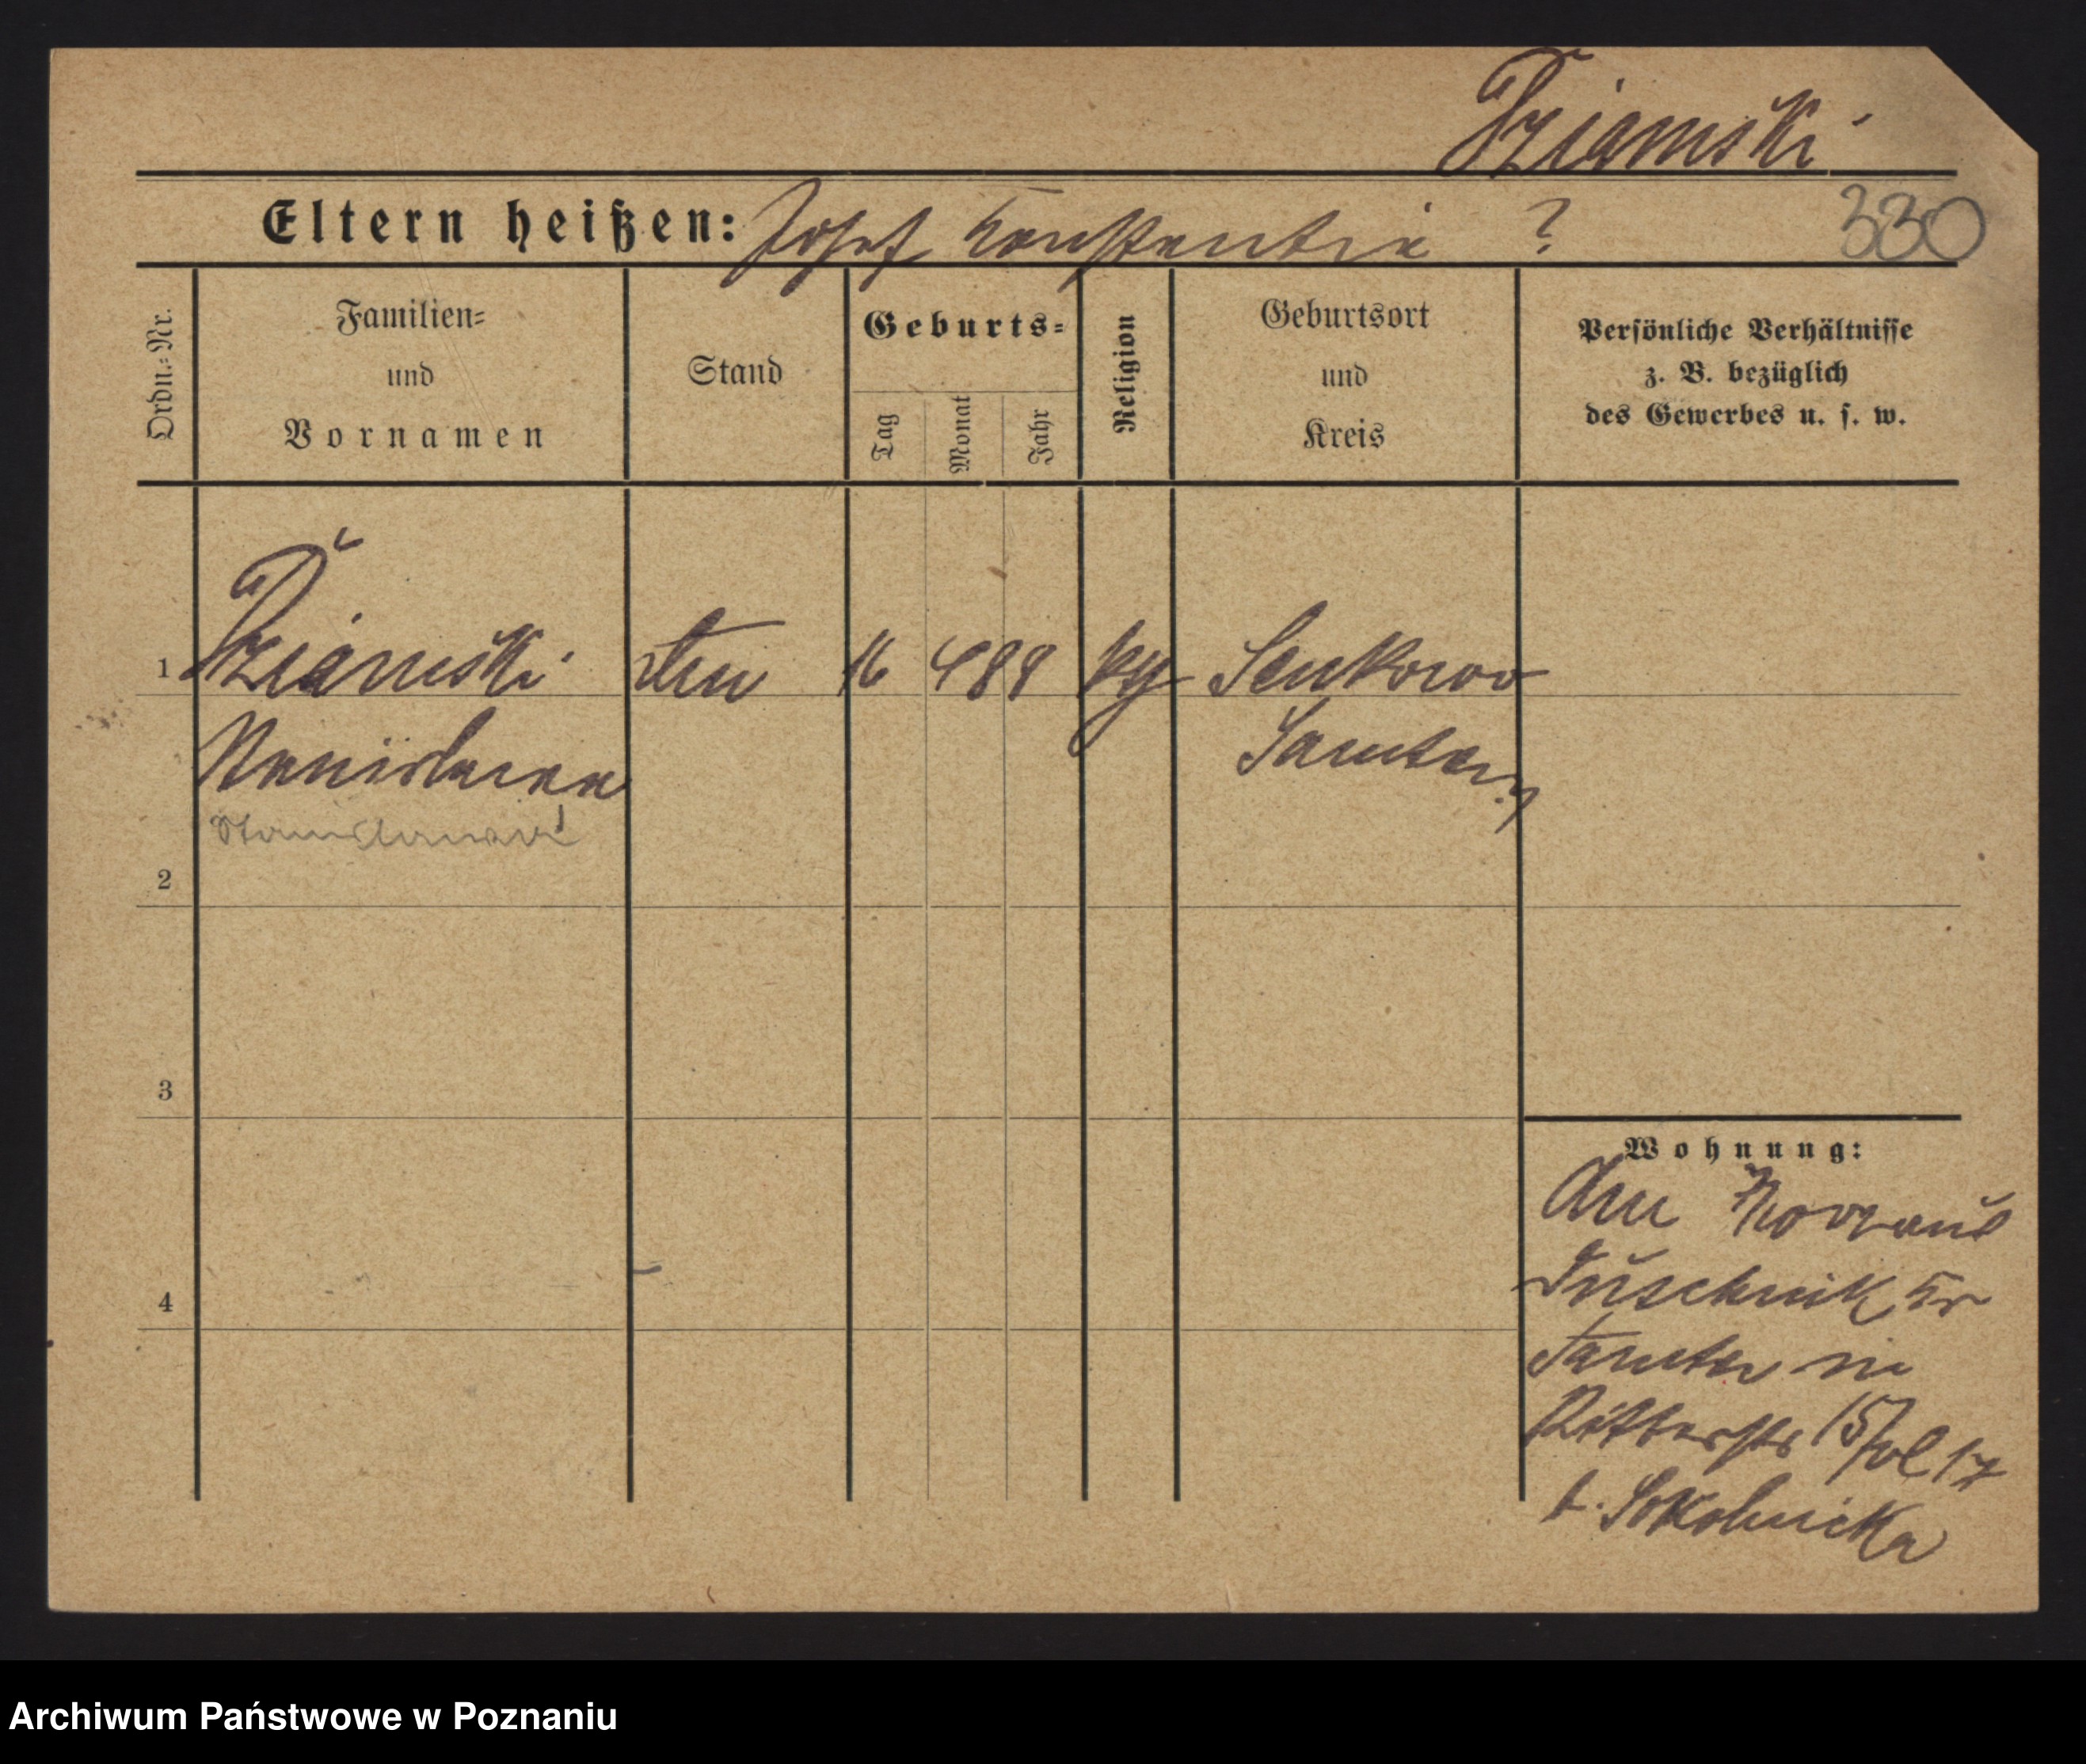 Dziamski
Eltern heißen: Josef Konstantia ?
330
Ordn.-Nr.
Familien-
und
Vornamen
Stand
Geburts-
Tag
Monat
Jahr
Religion
Geburtsort
und
Kreis
Persönliche Verhältnisse
z. B. bezüglich
des Gewerbes u. s. w.
1
Dziamski
16 4 88
Senkowo
Stanislawa
Samter
Stanislawa
2
3
Wohnung:
4
Duschnik Kr
Samter
Ritterstr 15
b. Sokolnicka
Archiwum Państwowe w Poznaniu